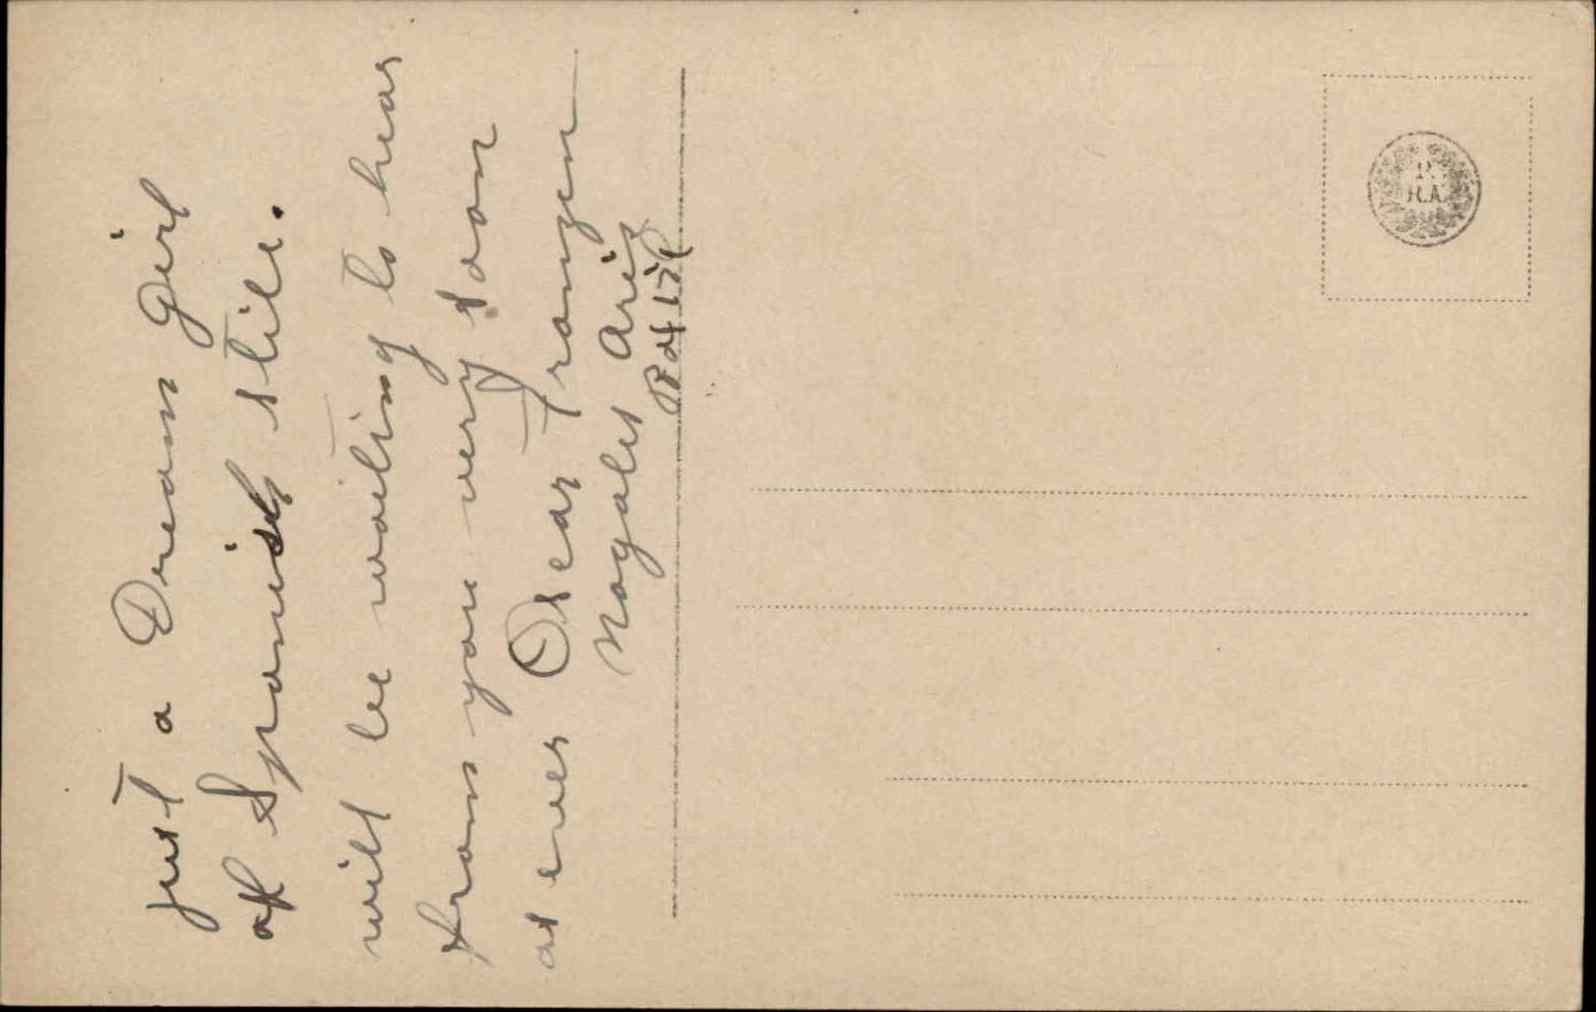 just a Dream girl
of Spanish stile.
will be waiting to hear
from you very soon
as ever Oscar Franzen
Nogales Ariz
R.
H.A.